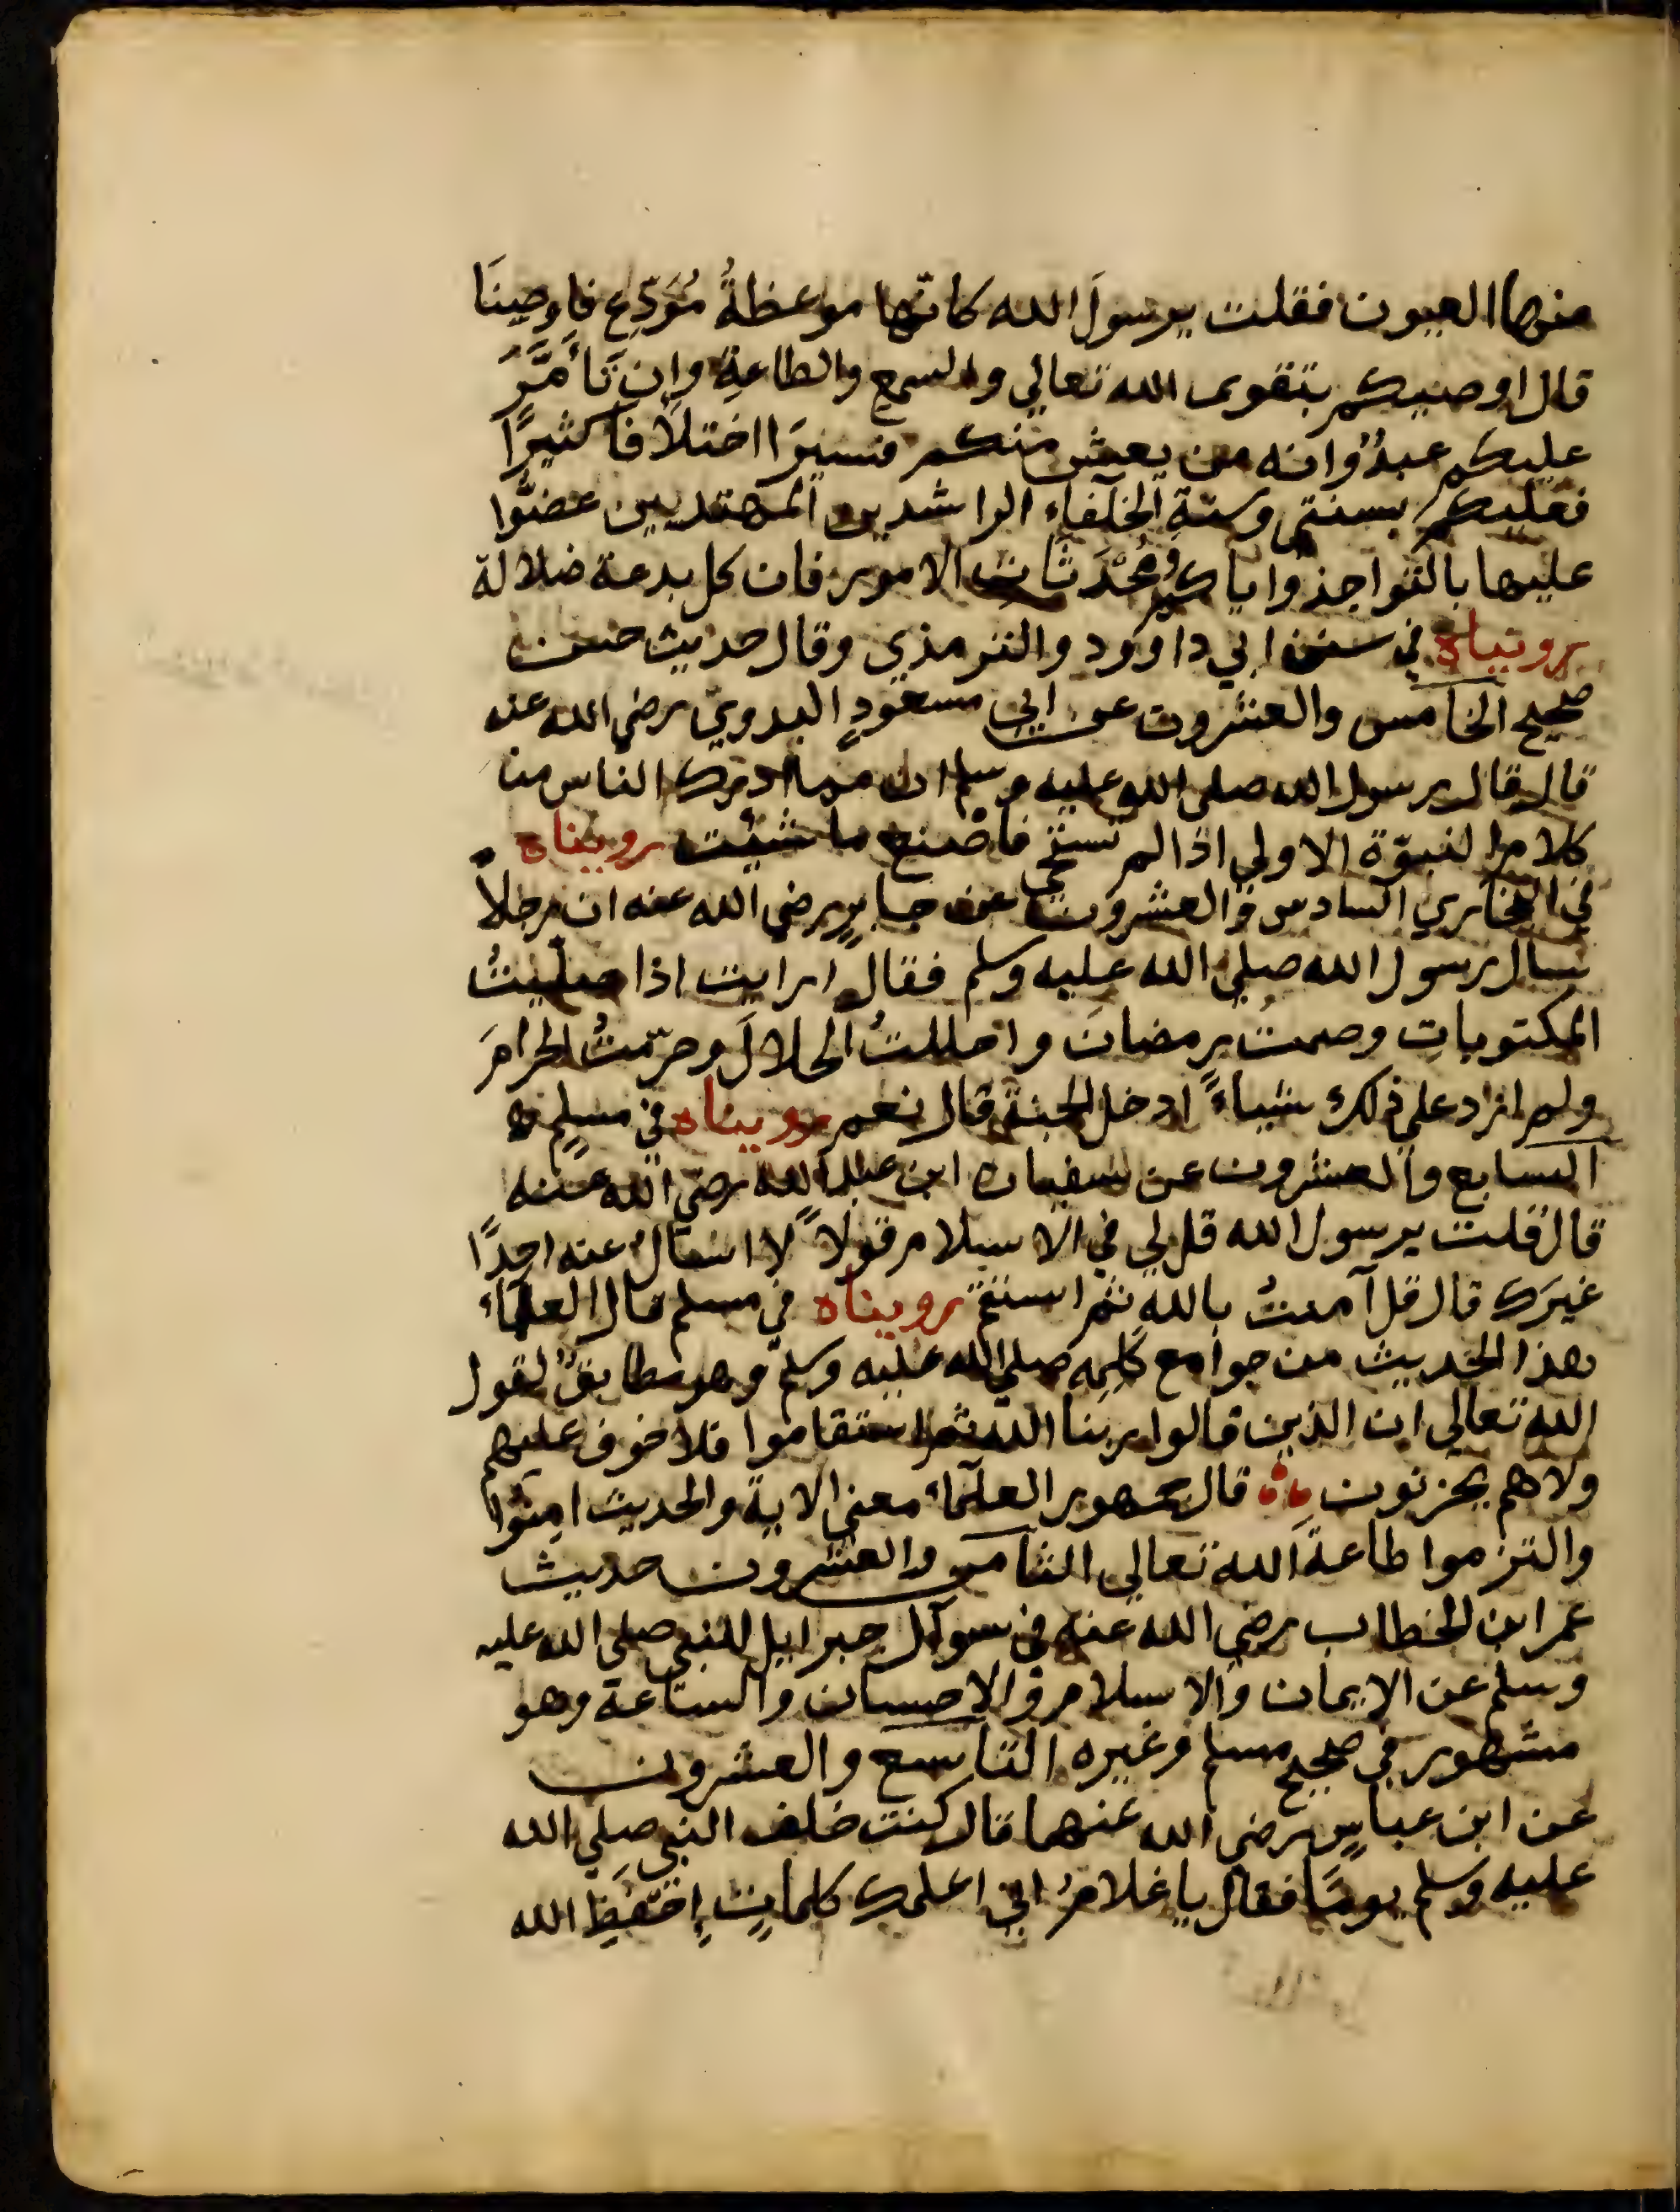 منها العيون فقلت يرسولَ الله كانّها موعظةُ مُوَدِّعٍ فاوصينَا
قال اوصيكم بتقوى الله تعالي والسمع والطاعةِ وان تَأَمَّرَ
عليكم عبدٌ وانه من يعش منكم فسيرَا اختلافا كثيرًا
فعليكم بسنتي وسنةِ الخلفاء الراشدين المهتديين عضوّا
عليها بالنواجذ واياكم ومُحْدَثات الامور فان كل بدعة ضلالة
رويناه في سنن ابي داوود والترمذي وقال حديث حسن
صحيح الخامس والعشرون عن ابي مسعودٍ البدويّ رضي الله عنه
قال قال رسول الله صلى الله عليه وسلم ان مما ادرك الناس من
كلام النبوّة الاولي اذا لم تستحي فاصْنع ما شئت رويناه
في البخاري السادس والعشرون عن جابرٍ رضي الله عنه ان رجلاً
سال رسول الله صلي الله عليه وسلم فقال ارايت اذا صلّيتُ
المكتوباتِ وصمتُ رمضانَ واحللتُ الحلالَ وحرّمتُ الحرامَ
ولم ازد علي ذلك شياءً ادخل الجنة قال نعم رويناه في مسلمٍ
السابع والعشرون عن سفيان ابن عبد الله رضي الله عنه
قال قلت يرسول الله قل لي في الاسلام قولاً لا اسال عنه احِدًا
غيرَك قال قل آمنتُ باللهِ ثم استقم رويناه في مسلم قال العلماء
هذا الحديث من جوامع كَلِمِه صلي الله عليه وسلّم وهو مطابقٌ لقول
الله تعالي ان الذين قالوا ربنا الله ثم استقاموا فلا خوف عليهم
ولاهم يحزنون قال جمهور العلماء معني الاية والحديث امِنُوا
والتزموا طاعةَ الله تعالي الثامن والعشرون حديث
عمر ابن الخطاب رضي الله عنه في سوآل جبرايل للنبي صلي الله عليه
وسلم عن الايمان والاسلام والاحسان والساعة وهو
مشهور في صحيح مسلم وغيره التاسع والعشرون
عن ابن عباسٍ رضي الله عنهما قال كنت خلف النبي صلي الله
عليه وسلم يومًا فقال يا غلامُ اني اعلمك كلماتٍ اِحْفَظِ الله